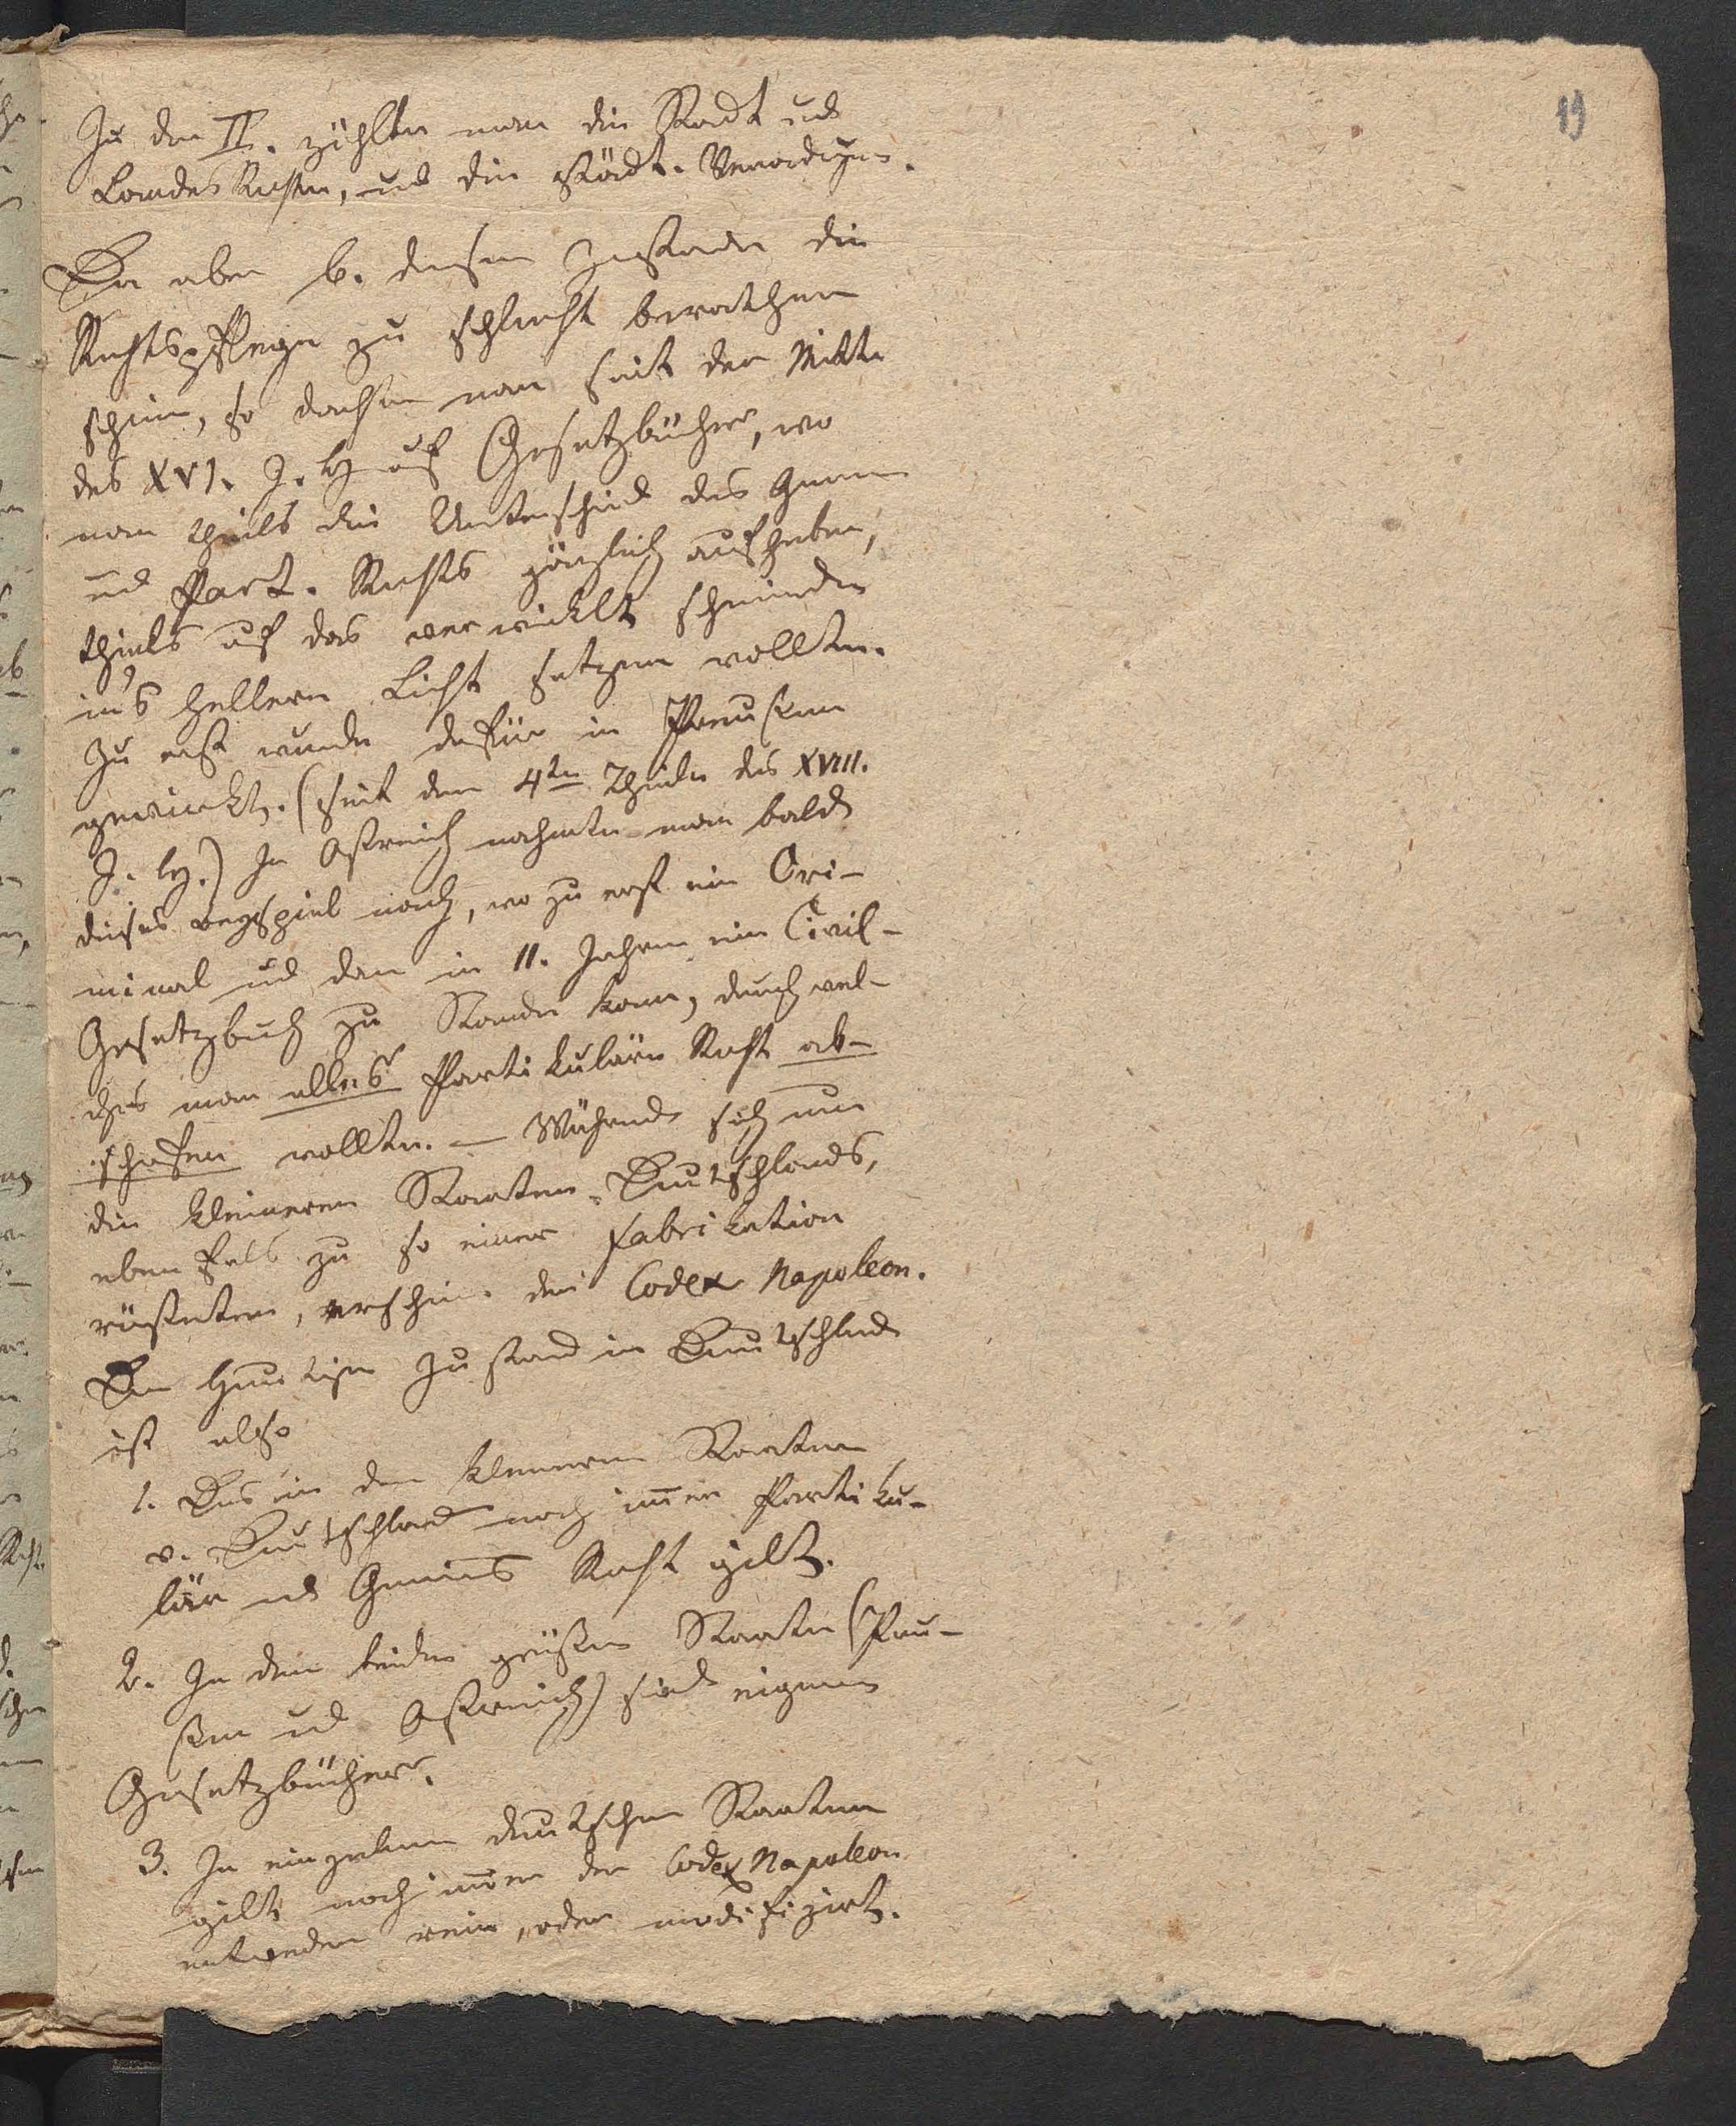 19
Zu den II. zählte man die Stadt und
Landes Rechte, und die städt. Verordgen.
Da aber b. diesem Zustande die
Rechtspflege zu schlecht berathen
schien, so dachte man seit der Mitte
des XVI. J. h auf Gesetzbücher, wo
man theils die Unterschied des Gemein
und Part. Rechts gänzlich aufheben,
theils auf das verwickelt scheinende
in's hellere Licht setzen wollte.
Zu erst wurde dafür in Preußen
gewirckt. (seit dem 4ten Theile des XVIII.
J. h.) In Ostreich nahmte man bald
dieses beyspiel nach, wo zu erst ein Cri-
minal und dan in 11. Jahren ein Civil-
Gesetzbuch zu Stande kam, durch wel-
ches man alles Partikuläre Recht ab-
schaffen wollte. — Während sich nun
die kleineren Staaten Deutschlands,
eben fals zu so einer Fabrikation
rüsteten, erschien der Codex Napoleon.
Der heutige Zustand in Deutschland
ist also
1. Das in den kleineren Staaten
v. Deutschland noch immer Partiku-
lär und Gemeines Recht gilt.
2. In den beiden größern Staaten (Preu-
ßen und Ostreich) sind eigene
Gesetzbücher.
3. In einzelnen deutschen Staaten
gilt noch immer der Codex Napoleon
entweder rein, oder modifizirt.